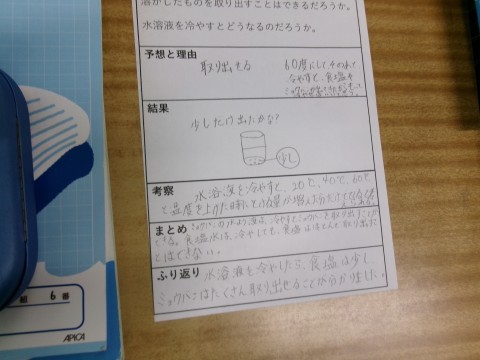 溶かしたものを取り出すことはできるだろうか。
水溶液を冷やすとどうなるのだろうか。
予想と理由
取り出せる
60度にして
冷やすと、食塩や
結果
少しだけ出たかな?
少し
考察
水溶液を冷やすと、20℃、40℃、60℃
と温度を上げた時にとける量が増えた分だけ
まとめ
できる。食塩水は、冷やしても、食塩はほとんど取り出すこ
とはできない。
ふり返り
水溶液を冷やしたら、食塩は少し、
ミョウバンはたくさん取り出せることが分かりました。
組 6番
APICA